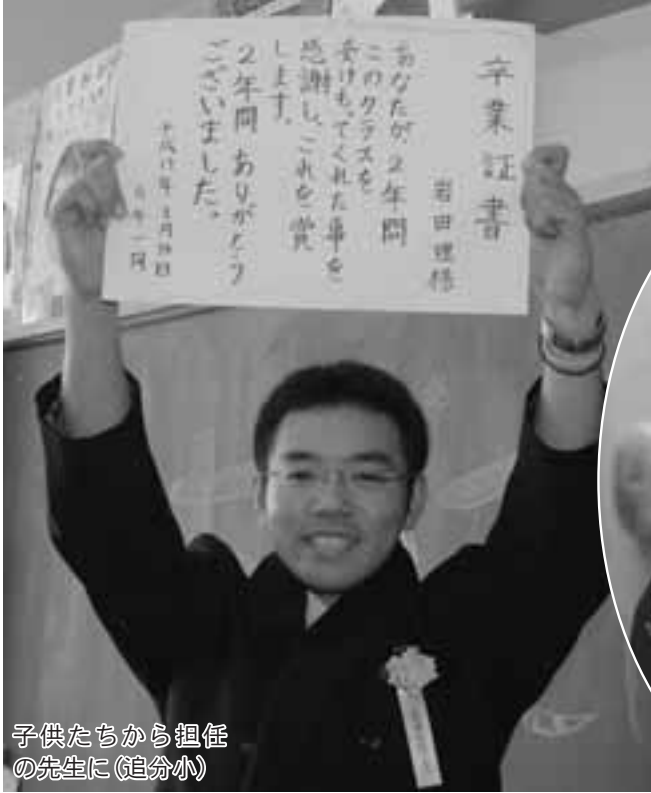 卒業証書
岩田理様
あなたが2年間
このクラスを
受けもってくれた事を
感謝し、これを賞
します。
2年間ありがとう
ございました。
子供たちから担任
の先生に(追分小)